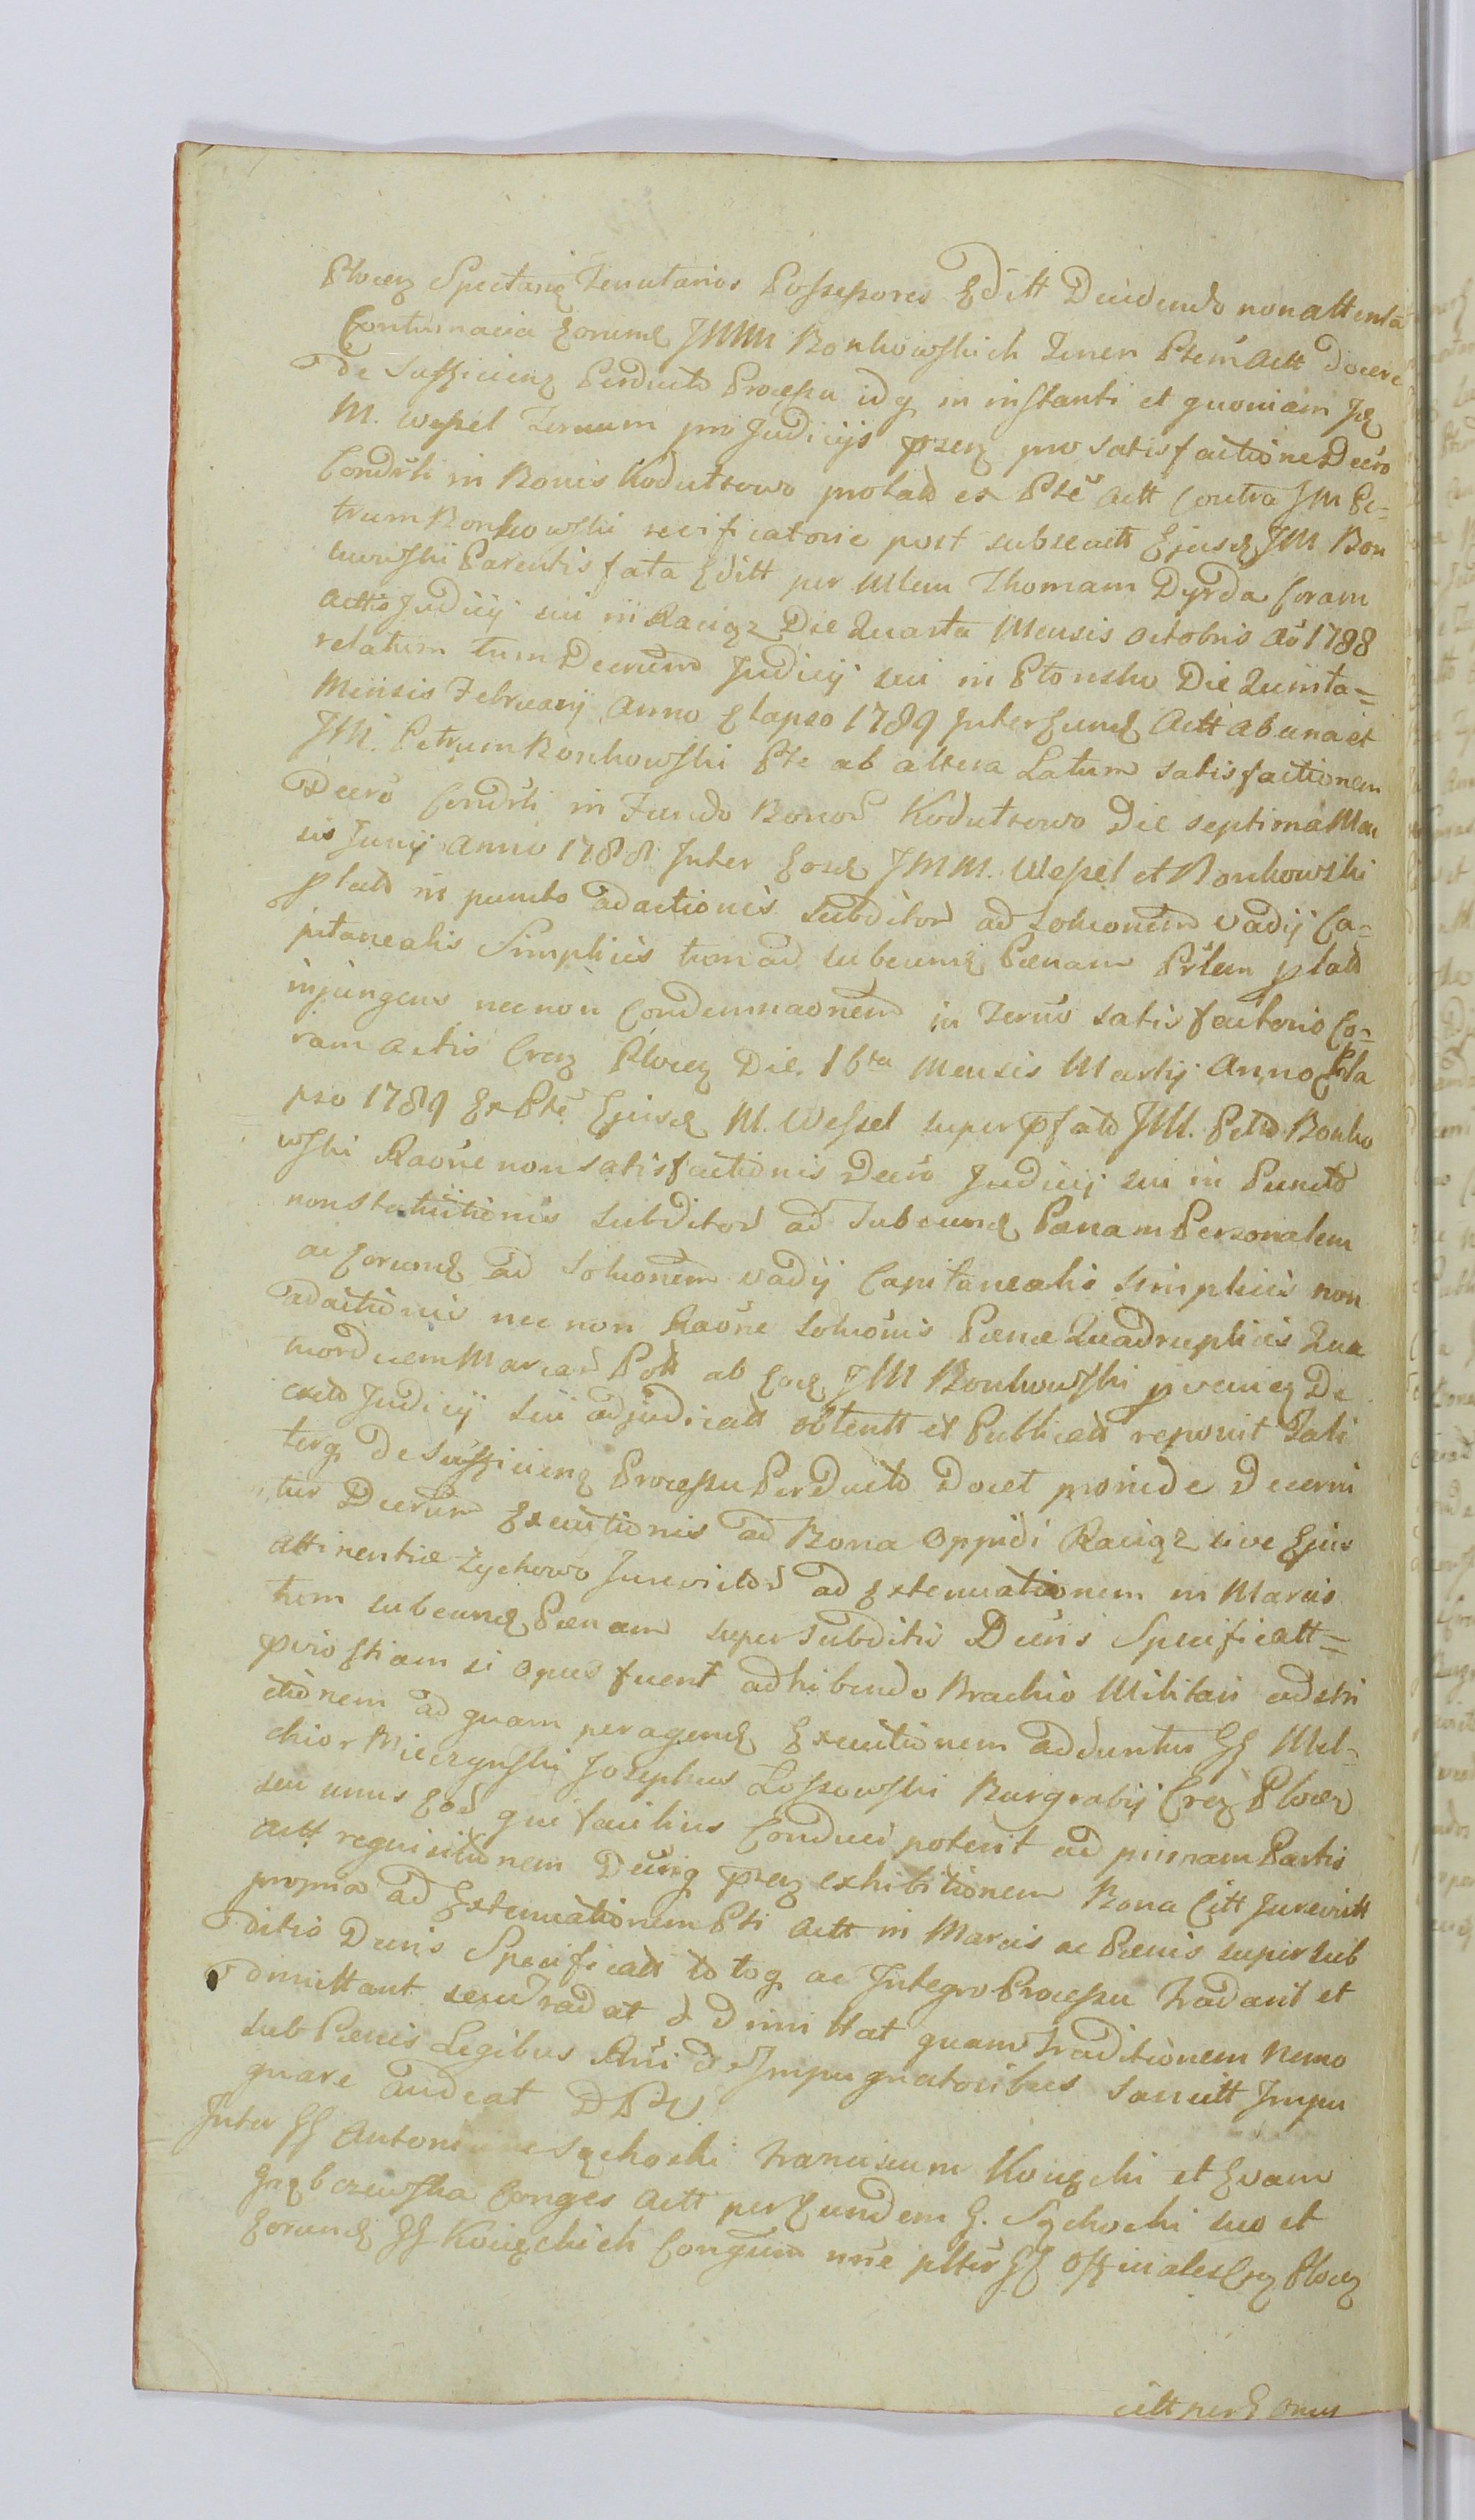 Plocen Spectanq Tenutarios Possessores Editt Decidendo non attenta
Contumacia eorumd JMM Bonkowskich Tener Ptem Actt docere
de Sufficienq Perducto Processu idq in instanti et quoniam Jd
M. Wessel Termum pro Judicijs przen pro satisfactione Decro
Condrti in Bonis Kodutowo prolato ex Pte Actt Contra JM Pe=
trum Bonkowski recificatorie post subsecutt Ejusd JM Bon
kowski Parentis fata Editt per Mlem Thomam Dyrda Coram
Actis Judicij sui in Raciąz Die Quarta Mensis Octobris Ao 1788
relatum tum Decretum Judicij sui in Płonsko Die Quinta=
Mensis Februarij Anno Elapso 1789 Inter Eund Actt ab una et
JM. Petrum Bonkowski Pte ab altera Latum satisfactionem
Decro Condrti in Fundo Bonor Kodutowo Die septima Men
sis Junij Anno 1788 Inter Eosd JMM. Wessel et Bonkowski
plato in puncto adactionis subditor ad Solutionem vadij Ca=
pitanealis Simplicis tum ad subeund Pænam Prlem plato
injungens nec non Condemnaonem in Termo satisfactorio Co=
ram Actis Cren Plocen Die 16ta Mensis Martij Anno Ela
pso 1789 Ex Pte Ejusd M. Wessel super pfato JM. Petro Bonko
wski Raone non satisfactionis Decro Judicij sui in Puncto
non statuitionis subditor ad Subeund Pænam Personalem
ac Eorund ad Solutionem vadij Capitanealis simplicis non
adactionis nec non Raone Solutionis Pænæ Quadruplicis Qua
tuordecem Marcar Poll ab Eod JM Bonkowski pvenien De
creto Judicij sui adjudicatt obtentt et Publicatt reponit Tali
terq de Sufficienq Processu Perducto Docet proinde Decerni
tur Decrum Executionis ad Bona Oppidi Raciąz sive Ejus
Attinentiæ Zychowo Jurevictor ad Extenuationem in Marcis
tum subeund Pænam super subditis Decris Specificatt=
pvio Etiam si opus fuerit adhibendo Brachio Militari adstri
ctionem ad quam peragend Executionem adduntur GG Mel=
chior Mierzynski Josephus Lossowski Burgrabij Cren Plocen
seu unus Eor qui facilius Conduci poterit ad primam Partis
Actt requisitionem Decriq przen exhibitionem Bona Citt Jurevictt
propria ad Extenuationem Pti Actt in Marcis ac Pænis super sub
ditis Decris Specificatt totoq ac Integro Processu tradant et
dimittant seu tradat & dimittat quam traditionem Nemo
sub Pænis Legibus Rni de Impugnatoribus sancitt Impu
gnare audeat DPM
Inter GG Antonium Sęchocki Franciscum Koniecki et Evam
Grąbczewska Conges Actt per Eundem G. Sęchocki suo et
Eorund GG Konieckich Congum nne pltes GG Officiales Cren Plocen
citt per G